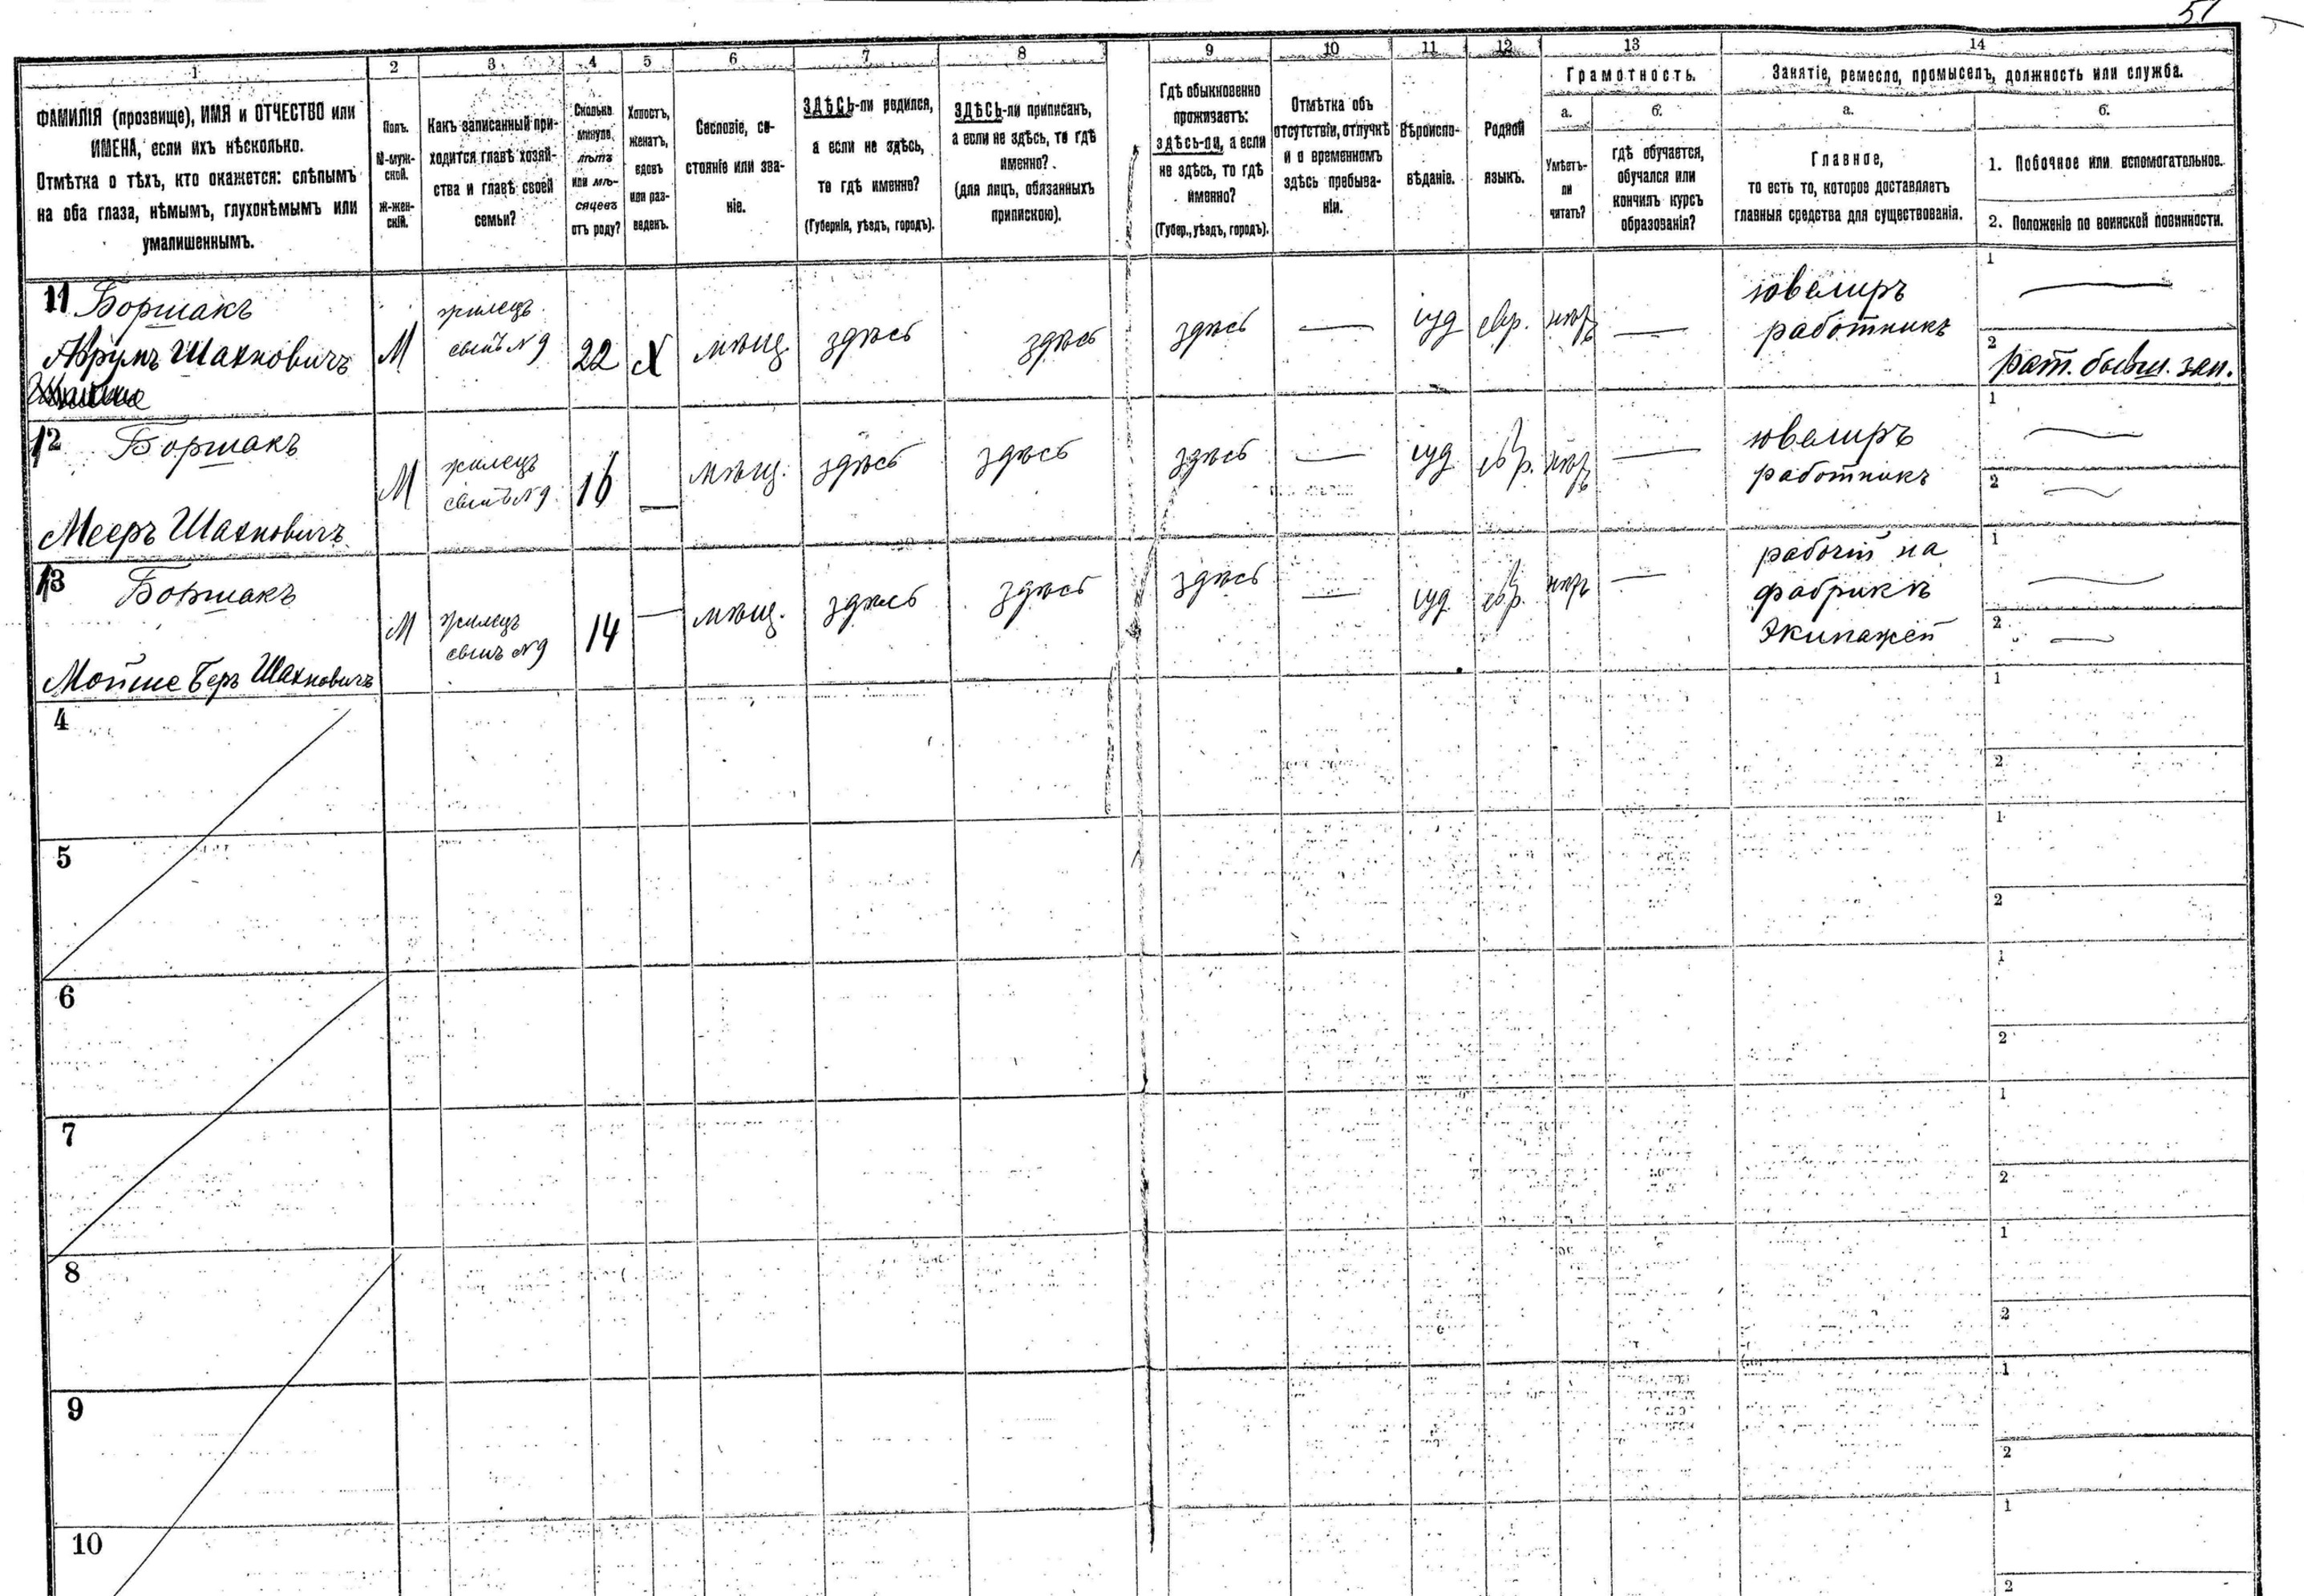 51
1
2
3
4
5
6
7
8
9
10
11
12
13
14
ФАМИЛІЯ (прозвище), ИМЯ и ОТЧЕСТВО или
ИМЕНА, если ихъ нѣсколько.
Отмѣтка о тѣхъ, кто окажется: слѣпымъ
на оба глаза, нѣмымъ, глухонѣмымъ или
умалишеннымъ.
Полъ.
М-муж-
ской.
Ж-жен-
скій.
Какъ записанный при-
ходится главѣ хозяй-
ства и главѣ своей
семьи?
Сколько
минуло
лѣтъ
или мѣ-
сяцевъ
отъ роду?
Холостъ,
женатъ,
вдовъ
или раз-
веденъ.
Сословіе, со-
стояніе или зва-
ніе.
ЗДѢСЬ-ли родился,
а если не здѣсь,
то гдѣ именно?
(Губернія, уѣздъ, городъ).
ЗДѢСЬ-ли приписанъ,
а если не здѣсь, то гдѣ
именно?
(для лицъ, обязанныхъ
припискою).
Гдѣ обыкновенно
проживаетъ:
здѣсь-ли, а если
не здѣсь, то гдѣ
именно?
(Губер., уѣздъ, городъ).
Отмѣтка объ
отсутствіи, отлучкѣ
и о временномъ
здѣсь пребыва-
ніи.
Вѣроиспо-
вѣданіе.
Родной
языкъ.
Грамотность.
а.
Умѣетъ-
ли
читать?
б.
гдѣ обучается,
обучался или
кончилъ курсъ
образованія?
Занятіе, ремесло, промыселъ, должность или служба.
а.
Главное,
то есть то, которое доставляетъ
главныя средства для существованія.
б.
1. Побочное или вспомогательное.
2. Положеніе по воинской повинности.
11 Боршакъ
Абрумъ Шахновичъ
М
жилецъ
сынъ №9
22
Х
мѣщ.
здѣсь
здѣсь
здѣсь
—
іуд
евр.
—
ювелиръ
работникъ
1
2
рат. бывш. зап.
12 Боршакъ
Мееръ Шахновичъ
М
жилецъ
сынъ №9
16
—
мѣщ.
здѣсь
здѣсь
здѣсь
—
іуд
евр.
—
ювелиръ
работникъ
1
2
13 Боршакъ
Мойше Беръ Шахновичъ
М
жилецъ
сынъ №9
14
—
мѣщ.
здѣсь
здѣсь
здѣсь
—
іуд
евр.
—
рабочій на
фабрикѣ
Экипажей
1
2
4
1
2
5
1
2
6
1
2
7
1
2
8
1
2
9
1
2
10
1
2